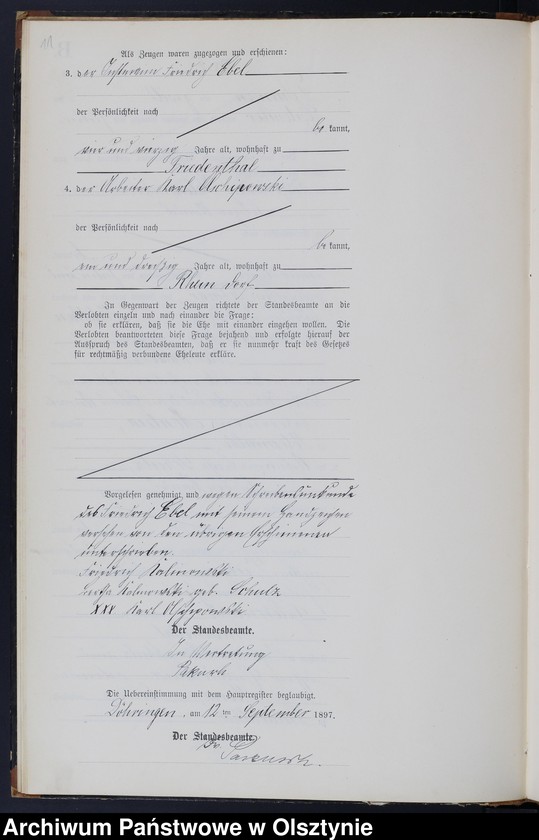 11
Als Zeugen waren zugezogen und erschienen:
3. der Instmann Friedrich Ebel
der Persönlichkeit nach
be kannt,
vier und vierzig Jahre alt, wohnhaft zu
Friedenthal
4. der Arbeiter Karl
der Persönlichkeit nach
be kannt,
ein und dreißig Jahre alt, wohnhaft zu
Rhein dorf
In Gegenwart der Zeugen richtete der Standesbeamte an die
Verlobten einzeln und nach einander die Frage:
ob sie erklären, daß sie die Ehe mit einander eingehen wollen. Die
Verlobten beantworteten diese Frage bejahend und erfolgte hierauf der
Ausspruch des Standesbeamten, daß er sie nunmehr kraft des Gesetzes
für rechtmäßig verbundene Eheleute erkläre.
Vorgelesen genehmigt und wegen Schreibensunkunde
des Friedrich Ebel mit seinem Handzeichen
versehen von den übrigen Erschienenen
unterschrieben.
Friedrich Kalinowski
Kalinowski geb. Schulz
XXX Karl
Der Standesbeamte.
In Vertretung
Die Uebereinstimmung mit dem Hauptregister beglaubigt.
Döhringen, am 12 ten September 1897.
Der Standesbeamte.
Archiwum Państwowe w Olsztynie